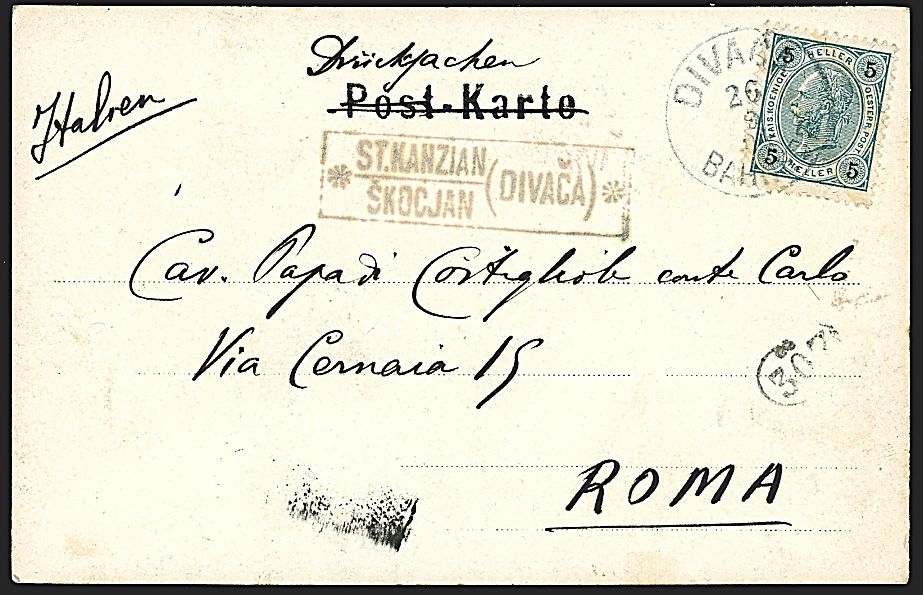 Drucksachen
Italien
Post-Karte
ST. KANZIAN
ŠKOCJAN
(DIVAČA)
DIVAČ
20
9
BAH
5 HELLER 5
KAIS. KOENIGL. OESTERR. POST
5 HELLER 5
Cav. Papadi Costigliole conte Carlo
Via Cernaia 15
307
ROMA